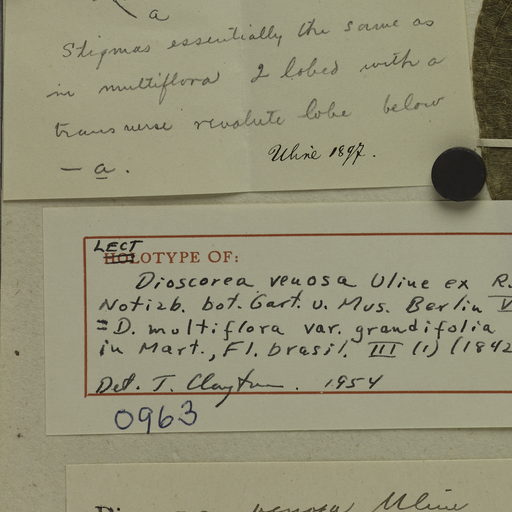 a
Stigmas essentially the same as
in multiflora 2 lobed with a
transverse revolute lobe below
— a.
Uline 1897.
LECT
HOLOTYPE OF:
Dioscorea venosa Uline ex R.
Notizb. bot. Gart. u. Mus. Berlin V
= D. multiflora var. grandifolia
in Mart., Fl. brasil. III (1) (1842
Det. T. Clayton. 1954
0963
venosa Uline